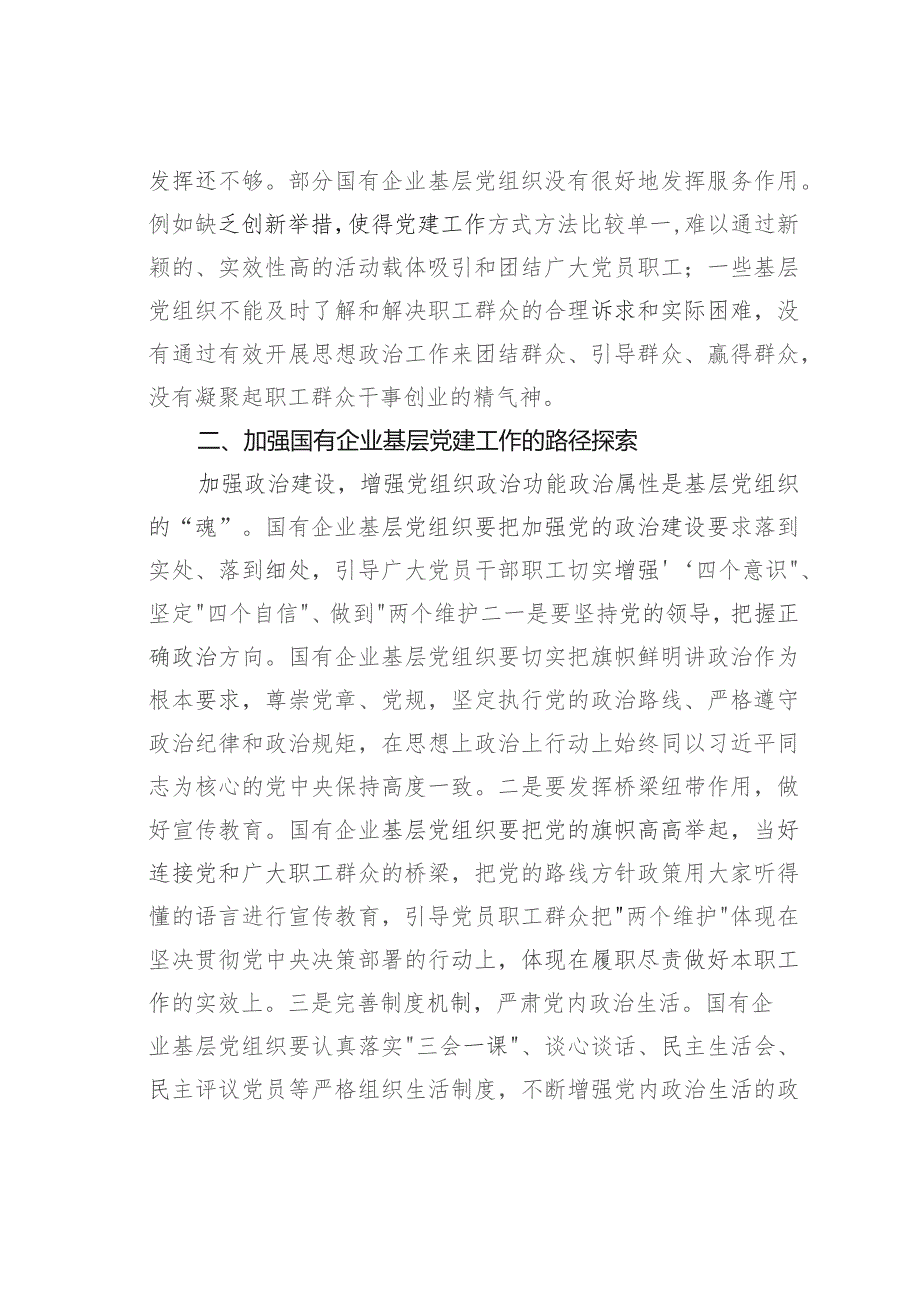 发挥还不够。部分国有企业基层党组织没有很好地发挥服务作用。
例如缺乏创新举措，使得党建工作方式方法比较单一,难以通过新
颖的、实效性高的活动载体吸引和团结广大党员职工；一些基层
党组织不能及时了解和解决职工群众的合理诉求和实际困难，没
有通过有效开展思想政治工作来团结群众、引导群众、赢得群众，
没有凝聚起职工群众干事创业的精气神。
二、加强国有企业基层党建工作的路径探索
加强政治建设，增强党组织政治功能政治属性是基层党组织
的“魂”。国有企业基层党组织要把加强党的政治建设要求落到
实处、落到细处，引导广大党员干部职工切实增强'‘四个意识"、
坚定"四个自信"、做到"两个维护二一是要坚持党的领导，把握正
确政治方向。国有企业基层党组织要切实把旗帜鲜明讲政治作为
根本要求，尊崇党章、党规，坚定执行党的政治路线、严格遵守
政治纪律和政治规矩，在思想上政治上行动上始终同以习近平同
志为核心的党中央保持高度一致。二是要发挥桥梁纽带作用，做
好宣传教育。国有企业基层党组织要把党的旗帜高高举起，当好
连接党和广大职工群众的桥梁，把党的路线方针政策用大家听得
懂的语言进行宣传教育，引导党员职工群众把"两个维护"体现在
坚决贯彻党中央决策部署的行动上，体现在履职尽责做好本职工
作的实效上。三是完善制度机制，严肃党内政治生活。国有企
业基层党组织要认真落实"三会一课"、谈心谈话、民主生活会、
民主评议党员等严格组织生活制度，不断增强党内政治生活的政